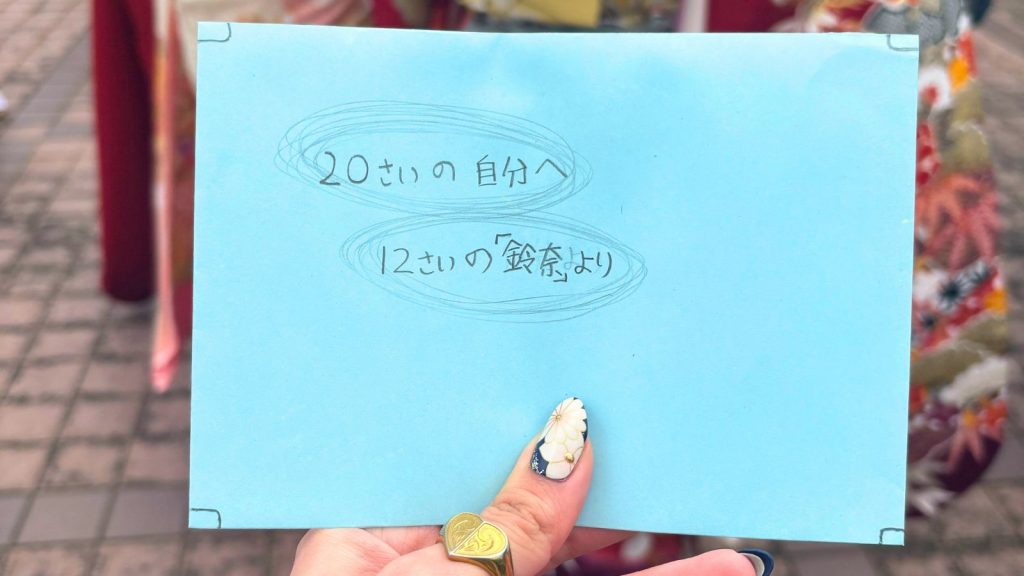 20さいの 自分へ
12さいの「鈴奈」より